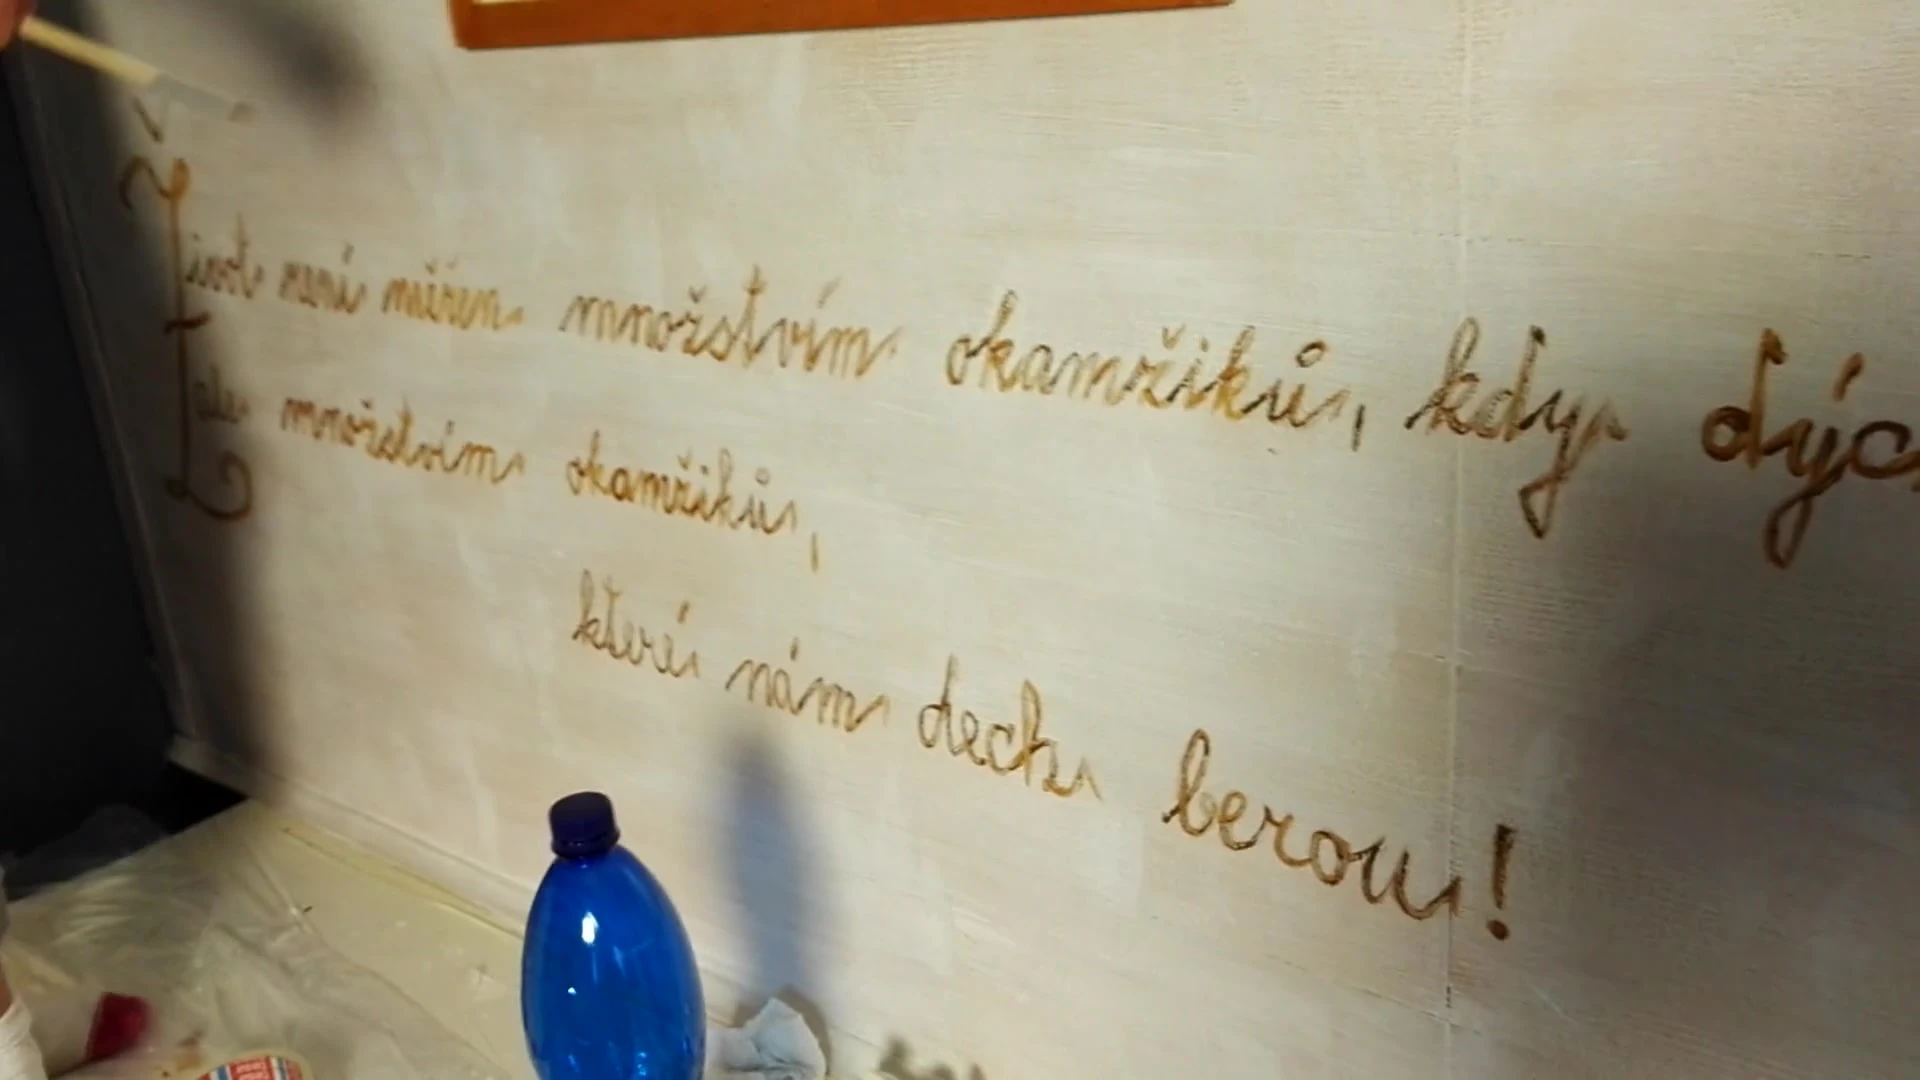 Život není měřen množstvím okamžiků, kdy dýc
ale množstvím okamžiků,
které nám dech berou!